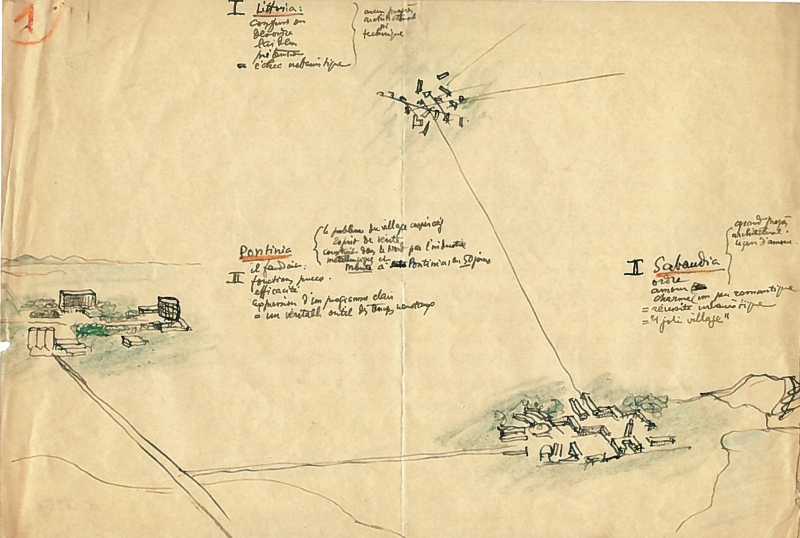 1
I Littoria:
confusion
désordre
laideur
prétention
= échec urbanistique
aucun progrès
architectural
ni
technique
Pontinia
III il faudrait:
fonctions pures.
efficacité
expression d'un programme clair
= un véritable outil des temps nouveaux
le problème du village coopératif
esprit de vérité
construit dans le Nord par l'industrie
métallurgique et
monté à Pontinia en 50 jours
II Sabaudia
ordre
amour
charme (un peu romantique
= réussite urbanistique
= "1 joli village"
grand progrès
architectural.
leçon d'amour.